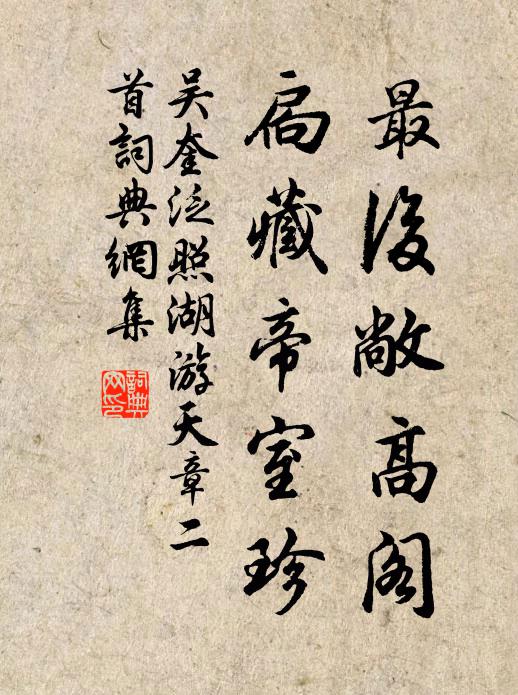 最後敞高閣
扃藏帝室珍
吴奎泛照湖游天章二
首詞典網集
詞典网印